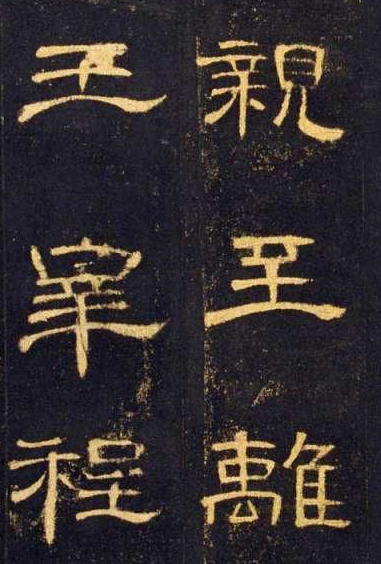 親至離
王皐程